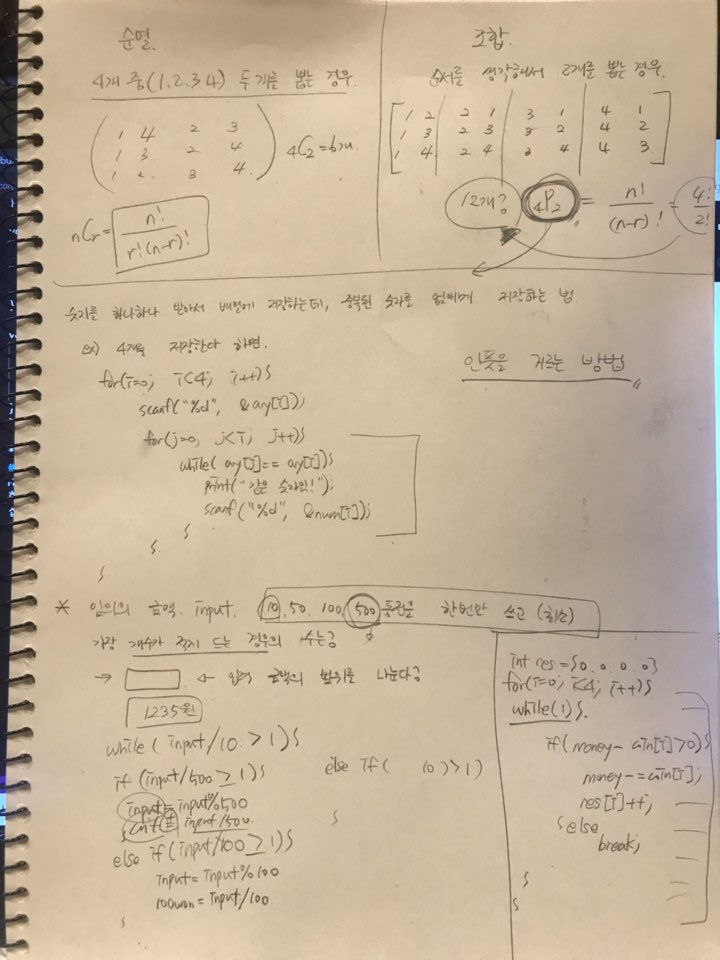 순열.
4개 중(1.2.3.4) 두개를 뽑는 경우.
1 4 2 3
1 3 2 4
1 2 3 4
4C2=6개.
nCr = n!
r!(n-r)!
조합.
순서를 생각해서 2개를 뽑는 경우.
1 2 2 1 3 1 4 1
1 3 2 3 3 2 4 2
1 4 2 4 3 4 4 3
12개? 4P2 = n! = 4!
(n-r)! 2!
숫자를 하나하나 받아서 배열에 저장하는데, 중복된 숫자를 없애며 저장하는 법
ex) 4개를 저장한다 하면.
인풋을 거르는 방법
for(i=0; i<4; i++){
scanf("%d", &ary[i]);
for(j=0; j<i; j++){
while( ary[j]== ary[i]){
print("같은 숫자임!");
scanf("%d", &num[i]);
}
}
}
* 임의의 금액. input. 10, 50, 100, 500 동전을 한번만 쓰고 (최소)
가장 개수가 적게 드는 경우의 수는?
→ ← 입력 금액의 범위를 나눈다?
1235원
while ( input/10. >1){
if (input/500 ≥1){
input = input%500
cnt = input/500.
}
else if(input/100 ≥1){
input = input%100
100won = input/100
}
else if( 10)>1)
}
int res = {0.0.0.0}
for(i=0; i<4; i++){
while(1){
if(money- coin[i]>0){
money-=coin[i];
res[i]++;
}else
break;
}
}